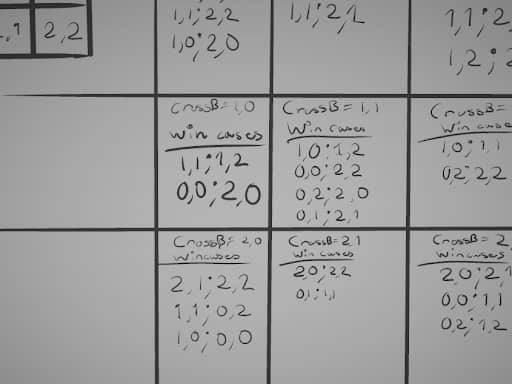 2,2
1,1;2,2
1,0;2,0
1,1;2,1
1,1;2
1,2;2
CrossB=1,0
win cases
1,1;1,2
0,0;2,0
CrossB=1,1
Win cases
1,0;1,2
0,0;2,2
0,2;2,0
0,1;2,1
CrossB=
Win cases
1,0;1,1
0,2;2,2
CrossB=2,0
wincases
2,1;2,2
1,1;0,2
1,0;0,0
CrossB=2,1
Win cases
2,0;2,2
0,1;1,1
CrossB=2,
wincases
2,0;2,1
0,0;1,1
0,2;1,2